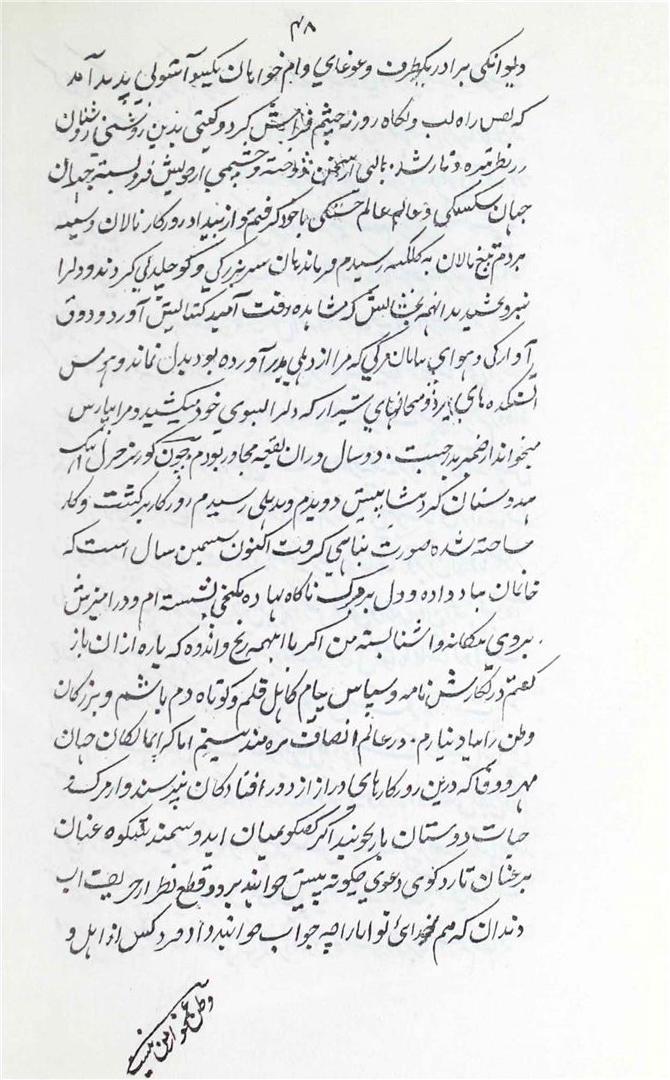 ۴۸
دیوانگی برادر یکطرف و غوغای وام خواهان یکسو آشوبی پدید آمد
که نفس راه لب و نگاه روزنه چشم فراموش کرد و گیتی بدین روشنی روشنان
در نظر تیره و تار شد. با لبی از سخن دوخته و چشمی از خویش فرو بسته جهان
جهان شکستگی و عالم عالم خستگی با خود گرفتم و از بیداد روزگار نالان و سینه
بر دم تیغ مالان به کلکته رسیدم فرماندهان سربزرگی و کوچکدلی کردند و دلرا
نیرو بخشیدند آنهمه بخشایش که مشاهده رفت امید گشایش آورد و ذوق
آوارگی و هوای بیابان مرگی که مرا از دهلی بدر آورده بود بدل نماند و هوس
آتشکده های یزد و میخانهای شیراز که دلرا بسوی خود میکشید و مرا بپارس
میخواند از ضمیر بدر جست. دو سال در ان بقعه مجاور بودم چون گورنر جنرل آهنگ
هندوستان کرد پیشاپیش دویدم و بدهلی رسیدم روزگار برگشت و کار
ساخته شده صورت تباهی گرفت اکنون ششمین سال است که
خانمان بباد داده و دل بر مرگ ناگاه نهاده بکنجی نشسته ام و در آمیزش
بروی بیگانه و آشنا بسته من اگر با اینهمه رنج و اندوه که پاره از ان باز
گفتم در نگارش نامه و سپاس پیام کاهل قلم و کوتاه دم باشم و بزرگان
وطن را بیاد نیارم. در عالم انصاف بزه مند نیستم اما گرانمایگان جهان
مهر و وفا که درین روزگارهای دراز از دور افتادگان نپرسند و از مرگ و
حیات دوستان باز نجویند اگر گفتگو بمیان آید و سمند شکوه عنان
بر عنان تازد گوی دعوی چگونه پیش خواهند برد و قطع نظر از حریف لب
دندان که هم بخدای توانا را چه جواب خواهند داد فرد کس از اهل
وطن غمخوار من نیست